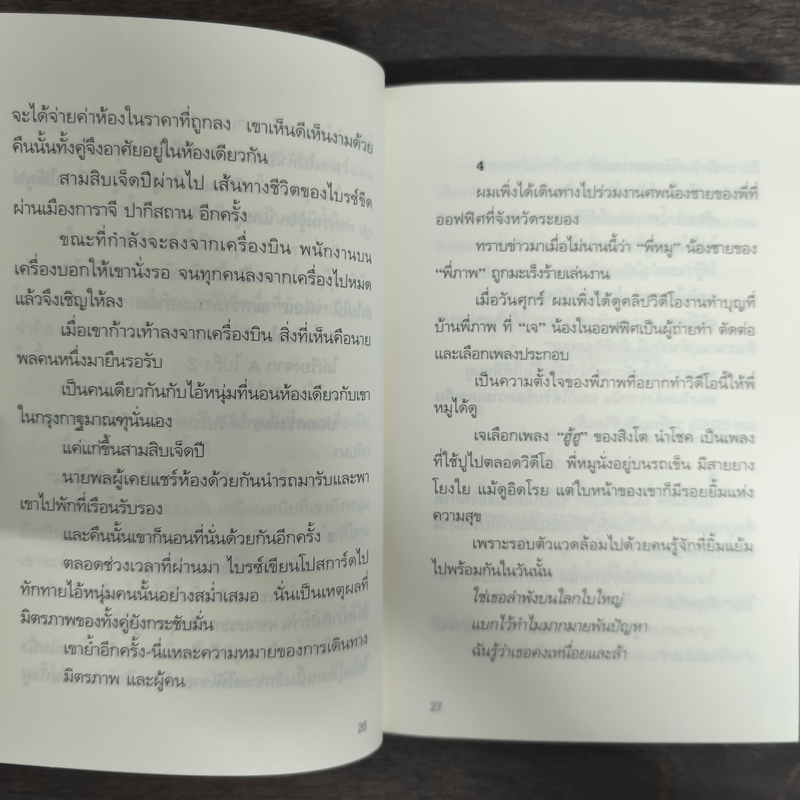 จะได้จ่ายค่าห้องในราคาที่ถูกลง เขาเห็นดีเห็นงามด้วย
คืนนั้นทั้งคู่จึงอาศัยอยู่ในห้องเดียวกัน
สามสิบเจ็ดปีผ่านไป เส้นทางชีวิตของไบรซ์ขีด
ผ่านเมืองการาจี ปากีสถาน อีกครั้ง
ขณะที่กำลังจะลงจากเครื่องบิน พนักงานบน
เครื่องบอกให้เขานั่งรอ จนทุกคนลงจากเครื่องไปหมด
แล้วจึงเชิญให้ลง
เมื่อเขาก้าวเท้าลงจากเครื่องบิน สิ่งที่เห็นคือนาย
พลคนหนึ่งมายืนรอรับ
เป็นคนเดียวกันกับไอ้หนุ่มที่นอนห้องเดียวกับเขา
ในกรุงกาฐมาณฑุนั่นเอง
แค่แก่ขึ้นสามสิบเจ็ดปี
นายพลผู้เคยแชร์ห้องด้วยกันนำรถมารับและพา
เขาไปพักที่เรือนรับรอง
และคืนนั้นเขาก็นอนที่นั่นด้วยกันอีกครั้ง
ตลอดช่วงเวลาที่ผ่านมา ไบรซ์เขียนโปสการ์ดไป
ทักทายไอ้หนุ่มคนนั้นอย่างสม่ำเสมอ นั่นเป็นเหตุผลที่
มิตรภาพของทั้งคู่ยังกระชับมั่น
เขาย้ำอีกครั้ง-นี่แหละความหมายของการเดินทาง
มิตรภาพ และผู้คน
26
4
ผมเพิ่งได้เดินทางไปร่วมงานศพน้องชายของพี่ที่
ออฟฟิศที่จังหวัดระยอง
ทราบข่าวมาเมื่อไม่นานนี้ว่า “พี่หมู” น้องชายของ
“พี่ภาพ” ถูกมะเร็งร้ายเล่นงาน
เมื่อวันศุกร์ ผมเพิ่งได้ดูคลิปวิดีโองานทำบุญที่
บ้านพี่ภาพ ที่ “เจ” น้องในออฟฟิศเป็นผู้ถ่ายทำ ตัดต่อ
และเลือกเพลงประกอบ
เป็นความตั้งใจของพี่ภาพที่อยากทำวิดีโอนี้ให้พี่
หมูได้ดู
เจเลือกเพลง “ฮู้ฮู” ของสิงโต นำโชค เป็นเพลง
ที่ใช้ปูไปตลอดวิดีโอ พี่หมูนั่งอยู่บนรถเข็น มีสายยาง
โยงใย แม้ดูอิดโรย แต่ใบหน้าของเขาก็มีรอยยิ้มแห่ง
ความสุข
เพราะรอบตัวแวดล้อมไปด้วยคนรู้จักที่ยิ้มแย้ม
ไปพร้อมกันในวันนั้น
ใช่เธอลำพังบนโลกใบใหญ่
แบกไว้ทำไมมากมายพันปัญหา
ฉันรู้ว่าเธอคงเหนื่อยและล้า
27